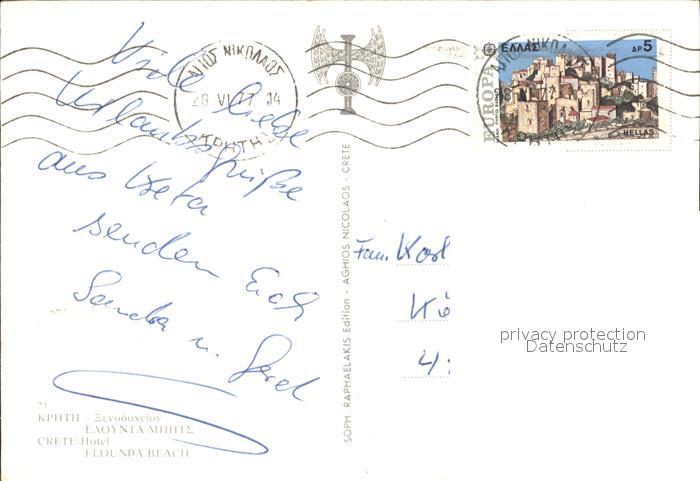 Viele liebe
Urlaubsgrüße
aus Kreta
senden Euch
Sandra u. Gerd
21
ΚΡΗΤΗ – Ξενοδοχείον
ΕΛΟΥΝΤΑ-ΜΠΗΤΣ
CRETE-Hotel
ELOUNDA BEACH
SOPH. RAPHAELAKIS Edition - AGHIOS NICOLAOS - CRETE
ΑΓΙΟΣ ΝΙΚΟΛΑΟΣ
28 VI 77 04
ΚΡΗΤΗΣ
EUROPA
ΕΛΛΑΣ
ΔΡ 5
HELLAS
Fam.
privacy protection
Datenschutz